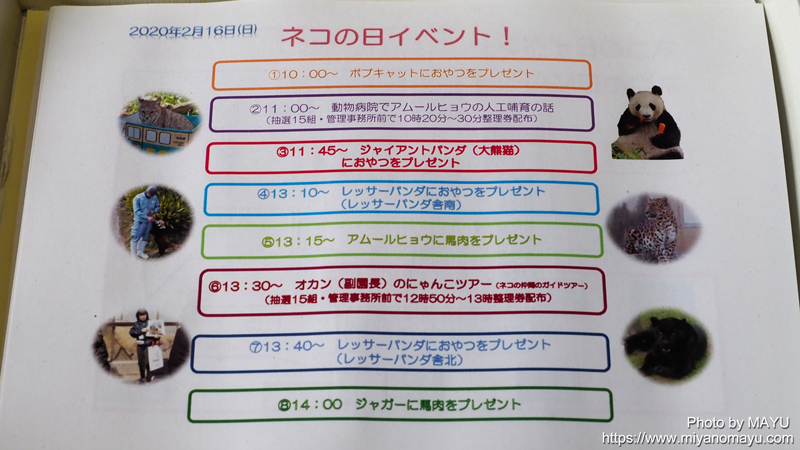 2020年2月16日(日)
ネコの日イベント！
①10：00〜　ボブキャットにおやつをプレゼント
②11：00〜　動物病院でアムールヒョウの人工哺育の話
（抽選15組・管理事務所前で10時20分〜30分整理券配布）
③11：45〜　ジャイアントパンダ（大熊猫）
におやつをプレゼント
④13：10〜　レッサーパンダにおやつをプレゼント
（レッサーパンダ舎南）
⑤13：15〜　アムールヒョウに馬肉をプレゼント
⑥13：30〜　オカン（副園長）のにゃんこツアー（ネコの仲間のガイドツアー）
（抽選15組・管理事務所前で12時50分〜13時整理券配布）
⑦13：40〜　レッサーパンダにおやつをプレゼント
（レッサーパンダ舎北）
⑧14：00　ジャガーに馬肉をプレゼント
Photo by MAYU
https://www.miyanomayu.com/